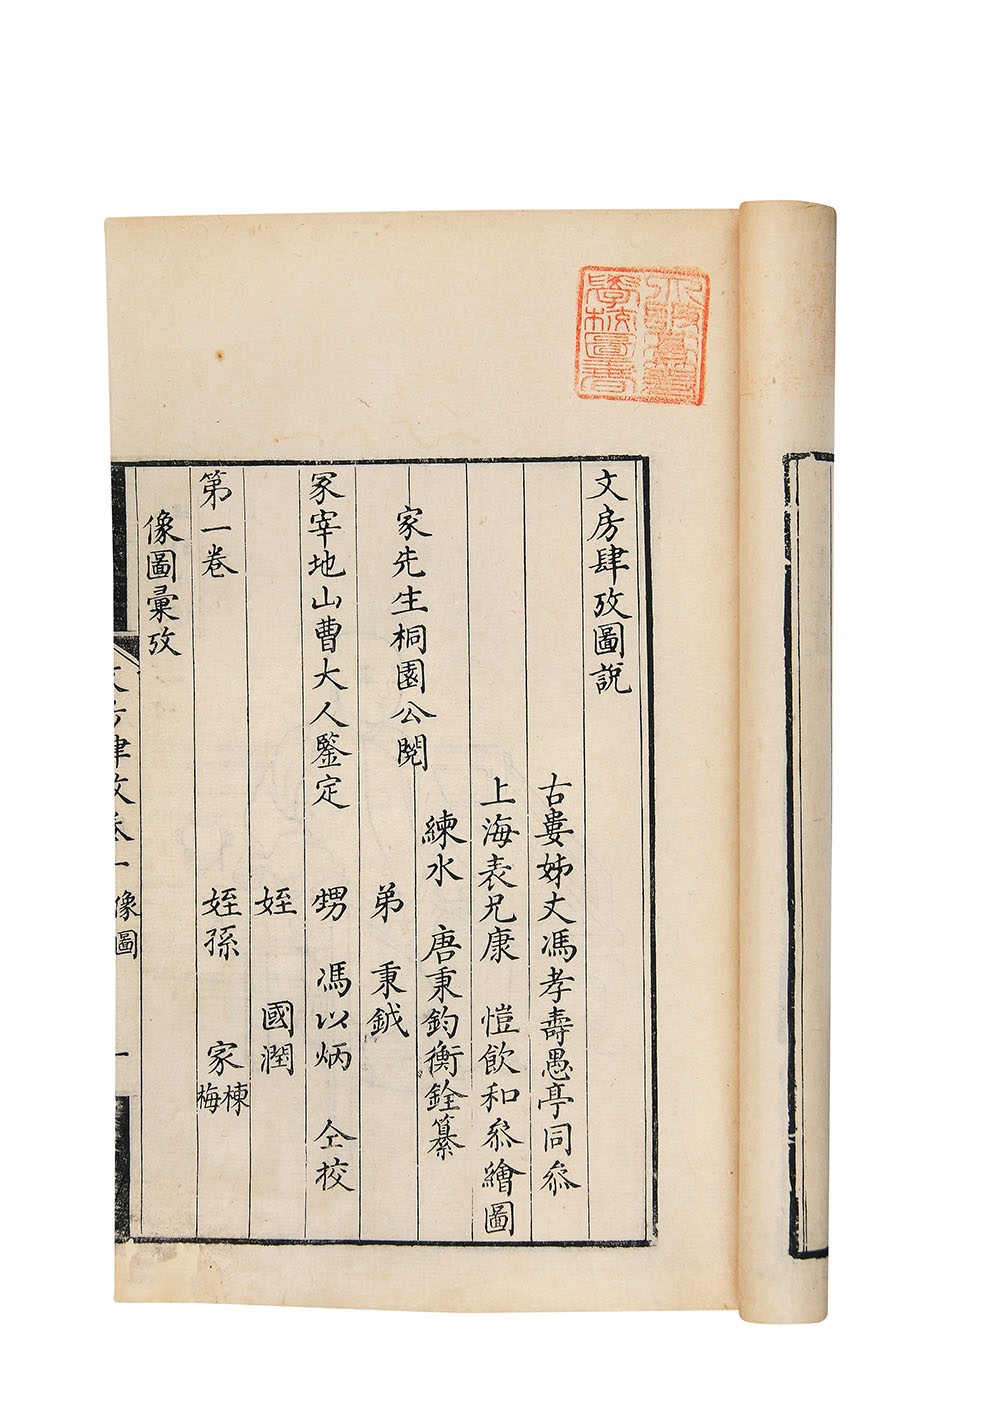 文房肆攷圖說
古婁姊丈馮孝壽愚亭同叅
上海表兄康 愷飲和叅繪圖
家先生桐園公閱
練水 唐秉鈞衡銓纂
弟 秉鉞
冢宰地山曹大人鑒定
甥 馮以炳 仝校
姪 國潤
第一卷
姪孫 家棟梅
像圖彙攷
文房肆攷卷一像圖 一
學校圖書